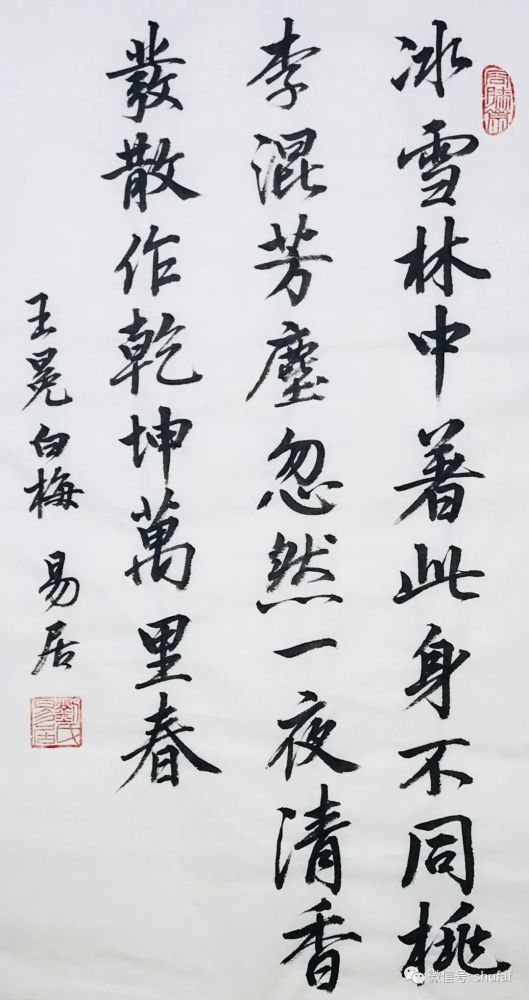 冰雪林中著此身不同桃
李混芳塵忽然一夜清香
發散作乾坤萬里春
王冕白梅 易居
微信号: shufaf